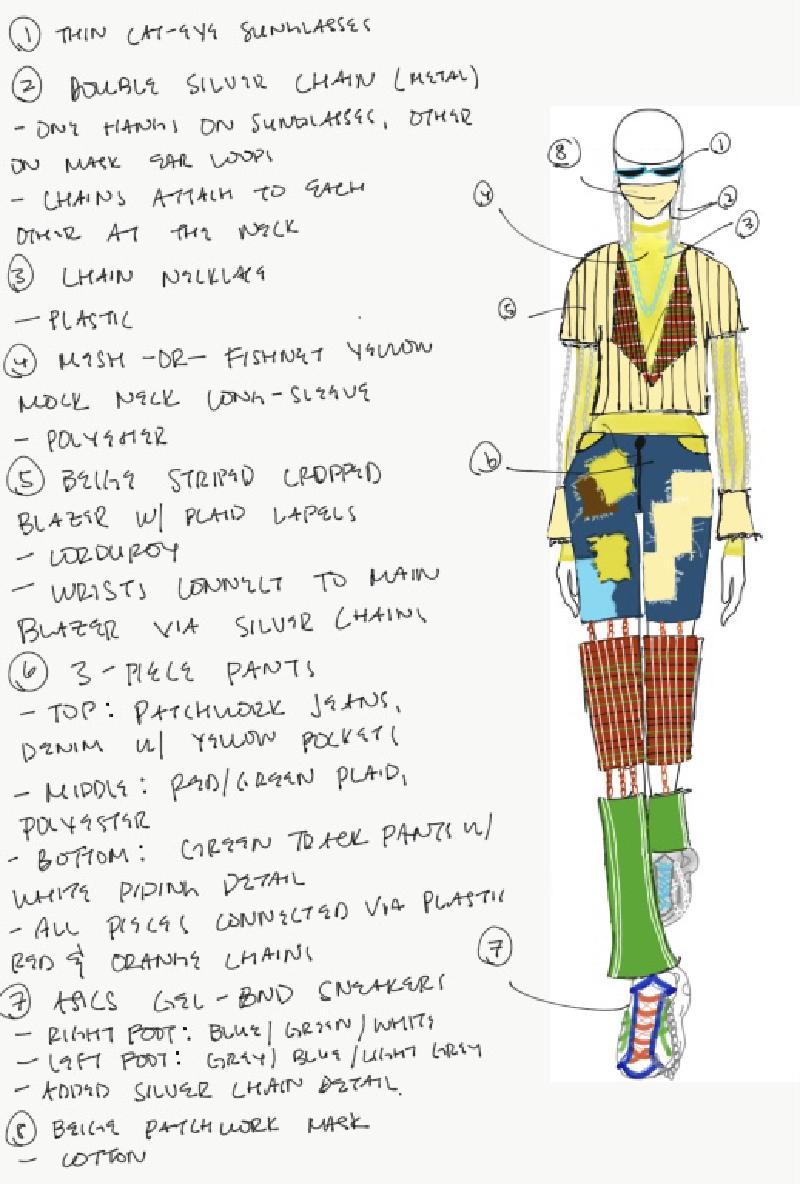 ① THIN CAT-EYE SUNGLASSES
② DOUBLE SILVER CHAIN (METAL)
- ONE HANGS ON SUNGLASSES, OTHER
ON MASK EAR LOOPS
- CHAINS ATTACH TO EACH
OTHER AT THE NECK
③ CHAIN NECKLACE
- PLASTIC
④ MESH -OR- FISHNET YELLOW
MOCK NECK LONG-SLEEVE
- POLYESTER
⑤ BEIGE STRIPED CROPPED
BLAZER W/ PLAID LAPELS
- CORDUROY
- WRISTS CONNECT TO MAIN
BLAZER VIA SILVER CHAINS
⑥ 3-PIECE PANTS
- TOP: PATCHWORK JEANS,
DENIM W/ YELLOW POCKETS
- MIDDLE: RED/GREEN PLAID,
POLYESTER
- BOTTOM: GREEN TRACK PANTS W/
WHITE PIPING DETAIL
- ALL PIECES CONNECTED VIA PLASTIC
RED & ORANGE CHAINS
⑦ ASICS GEL-BND SNEAKERS
- RIGHT FOOT: BLUE/GREEN/WHITE
- LEFT FOOT: GREY/BLUE/LIGHT GREY
- ADDED SILVER CHAIN DETAIL.
⑧ BEIGE PATCHWORK MASK
- COTTON
①
⑧
②
④
③
⑤
⑥
⑦